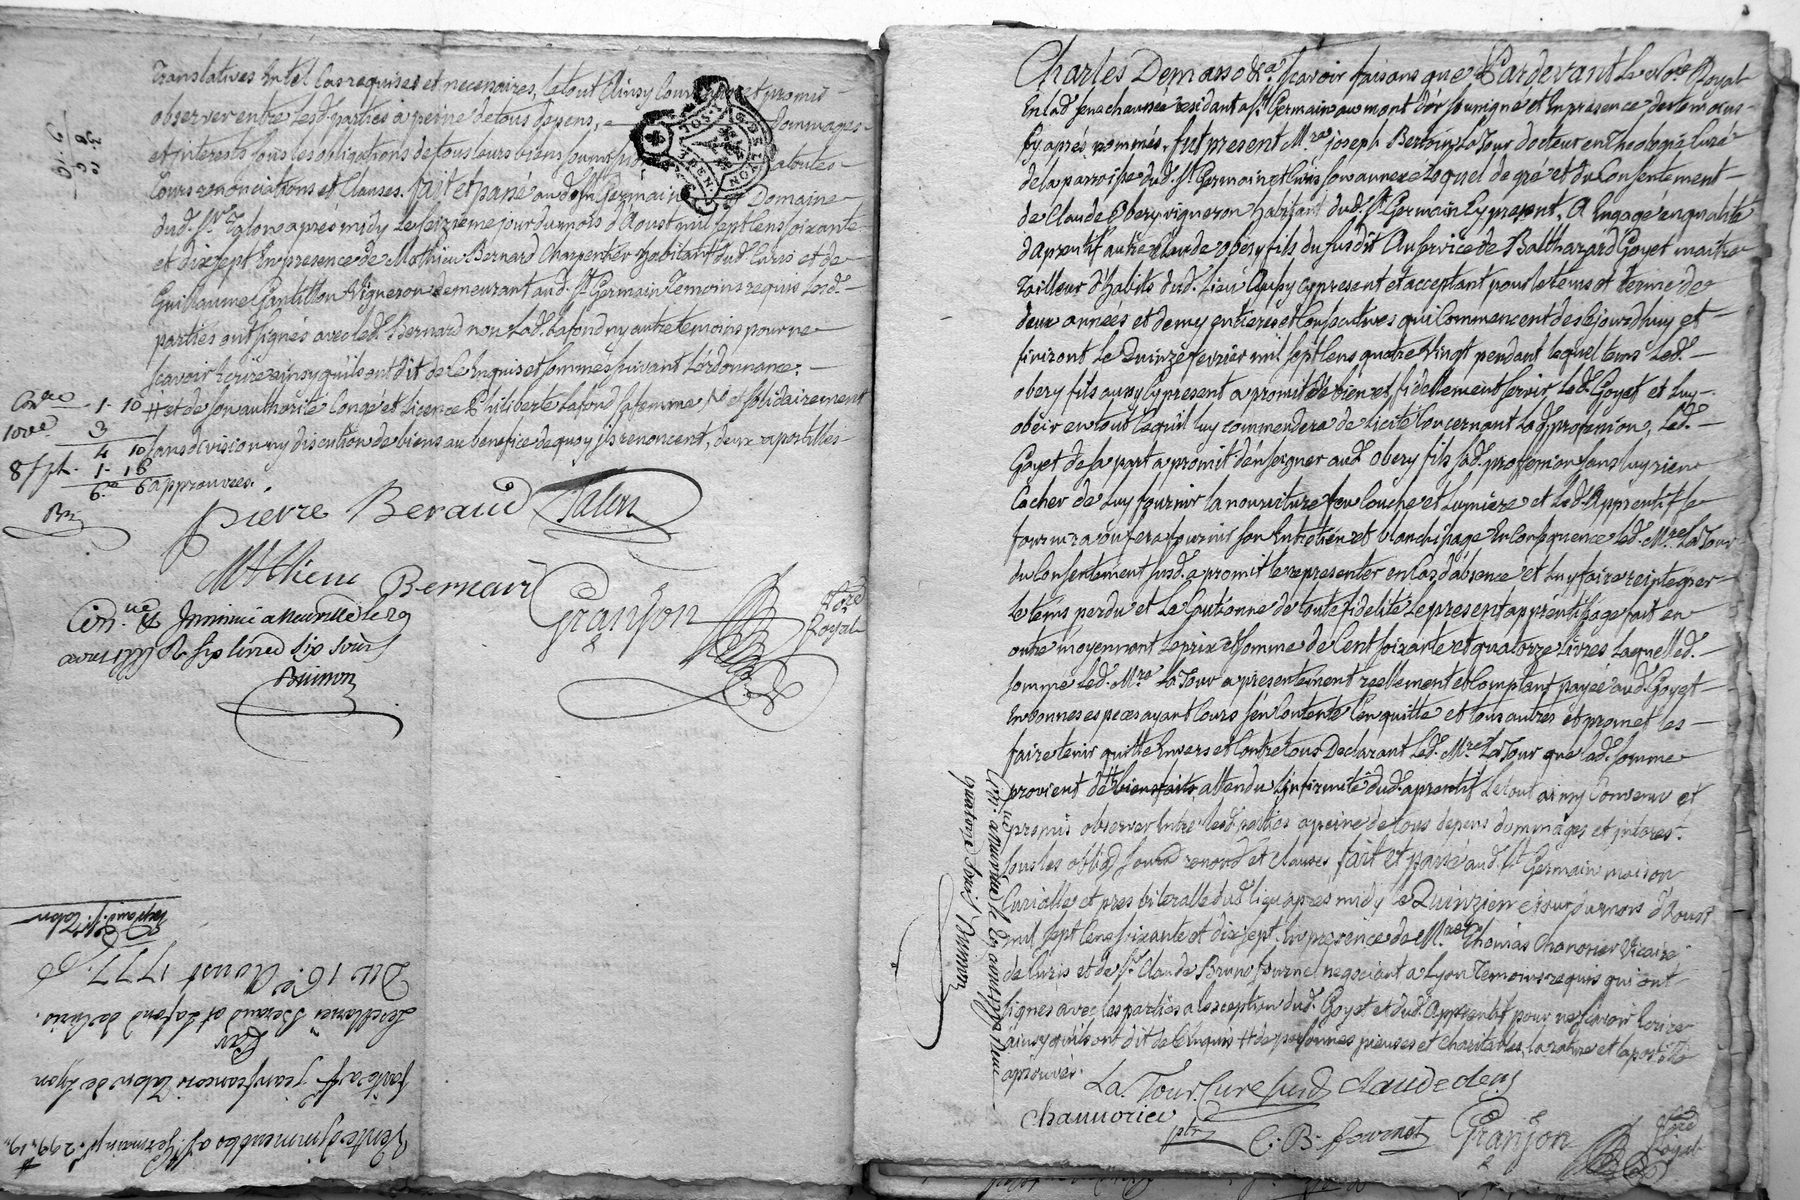 translatives en tel cas requises et necessaires, le tout Ainsy convenu et promis
observer entre lesd. parties a peine de tous depens, Dommages
et interests sous les obligations de tous leurs biens
Cours renonciations et Clauses. fait et passé aud. St Germain Domaine
dud. Sr Talon apres midy le seizieme jour du mois d'Aoust mil sept cens soixante
et dixsept En presence de Mathieu Bernard Charpentier habitant dud. Curis et de
Guillaume Gantillon Vigneron demeurant aud. St Germain Temoins requis Lesd.
parties ont signés avec led. Bernard non Lad. Lafond ny autre temoins pour ne
scavoir Ecrire ainsy qu'ils ont dit de ce Enquis et sommés suivant L'ordonnance.
# et de son authorité Congé et Licence Philiberte Lafond sa femme et solidairement
sans division ny discution de biens au benefice de quoy ils renoncent, deux apostilles
approuvées.
Con.le 1. 10
100e 3
4 10
8 s. pl. 1. 16
6. 6
pierre Beraud Talon
Mathieu Bernard
Granjon Nore Royal
Con.lé et Insinué a Neuville le 29
aoust 1777 R. six livres six sous
Brirmon
Vente d'immeubles a St Germain p.r 299. 19
faite a Sr Jean francois Talon de Lyon
Par
Les Mariés Beraud et Lafond de Curis.
Du 16e Aoust 1777.
Exp. aud. Sr Talon
Charles Demasso &a Scavoir faisons que Pardevant Le Nore Royal
En lad. Senechaussée residant a St Germain au mont d'or soussigné et En presence des temoins
cy après nommés, fut present Mre joseph Bertoin La Tour docteur en Theologie Curé
de la parroisse dud. St Germain et Curis son annexe Lequel de gré et du Consentement
de Claude Obery vigneron habitant dud. St Germain Cy present, A Engagé en qualité
d'aprentif autre Claude obery fils du susdit Au service de Balthazard Goyet maitre
Tailleur d'habits dud. Lieu Aussy cy present et acceptant pour le tems et terme de
deux années et demy entieres et consecutives qui Commencent dès ce jourdhuy et
finiront Le Quinze fevrier mil sept cens quatre Vingt pendant lequel tems Led.
obery fils aussy Cy present a promit de bien et fidellement servir Led. Goyet et luy
obeir en tout ce qu'il luy commendera de Licite Concernant Lad. profession, Led.
Goyet de sa part a promit d'enseigner aud. obery fils sad. profession sans luy rien
Cacher de Luy fournir la nourriture feu couche et Lumiere et Led. Apprentif se
fournira ou fera fournir son Entretien et blanchisage En Consequence led. Mre La Tour
du Consentement susd. a promit le representer en Cas d'absence et Luy faire reintegrer
Le tems perdu et Le Cautionne de toute fidelité Le present apprentissage fait en
outre moyennant Le prix et somme de Cent soixante et quatorze Livres Laquelle d.
somme Led. Mre La Tour a presentement reellement et Comptant payée aud. Goyet
En bonnes especes ayant Cours s'en Contente l'en quitte et tous autres et promet les
faire tenir quitte Envers et Contre tous Declarant Led. Mre La Tour que lad. somme
provient de # bienfaits attendu L'infirmité dud. aprentif Le tout ainsy Convenu et
promis observer Entre lesd. parties a peine de tous depens dommages et interes.
sous les oblig. soum. renond. et clauses fait et passé aud. St Germain maison
Curialle et presbiteralle dud. lieu apres midy Le Quinzieme jour du mois d'Aoust
mil sept cens soixante et dixsept. En presence de Mre Thomas Chanorier Vicaire
de Curis et de Sr Claude Bruno fournel negociant a Lyon Temoins requis qui ont
signés avec les parties a l'exception dud. Goyet et dud. Apprentif pour ne scavoir Ecrire
ainsy qu'ils ont dit de ce Enquis # de personnes pieuses et charitables, la rature et l'apostille
aprouvés.
Con.lé a Neuville le 29 aoust 1777 Reçu
quatorze sous Brirmon
La Tour Curé susd. Claude
Chanorier
ptre C. B. fournel Granjon Nore Royal